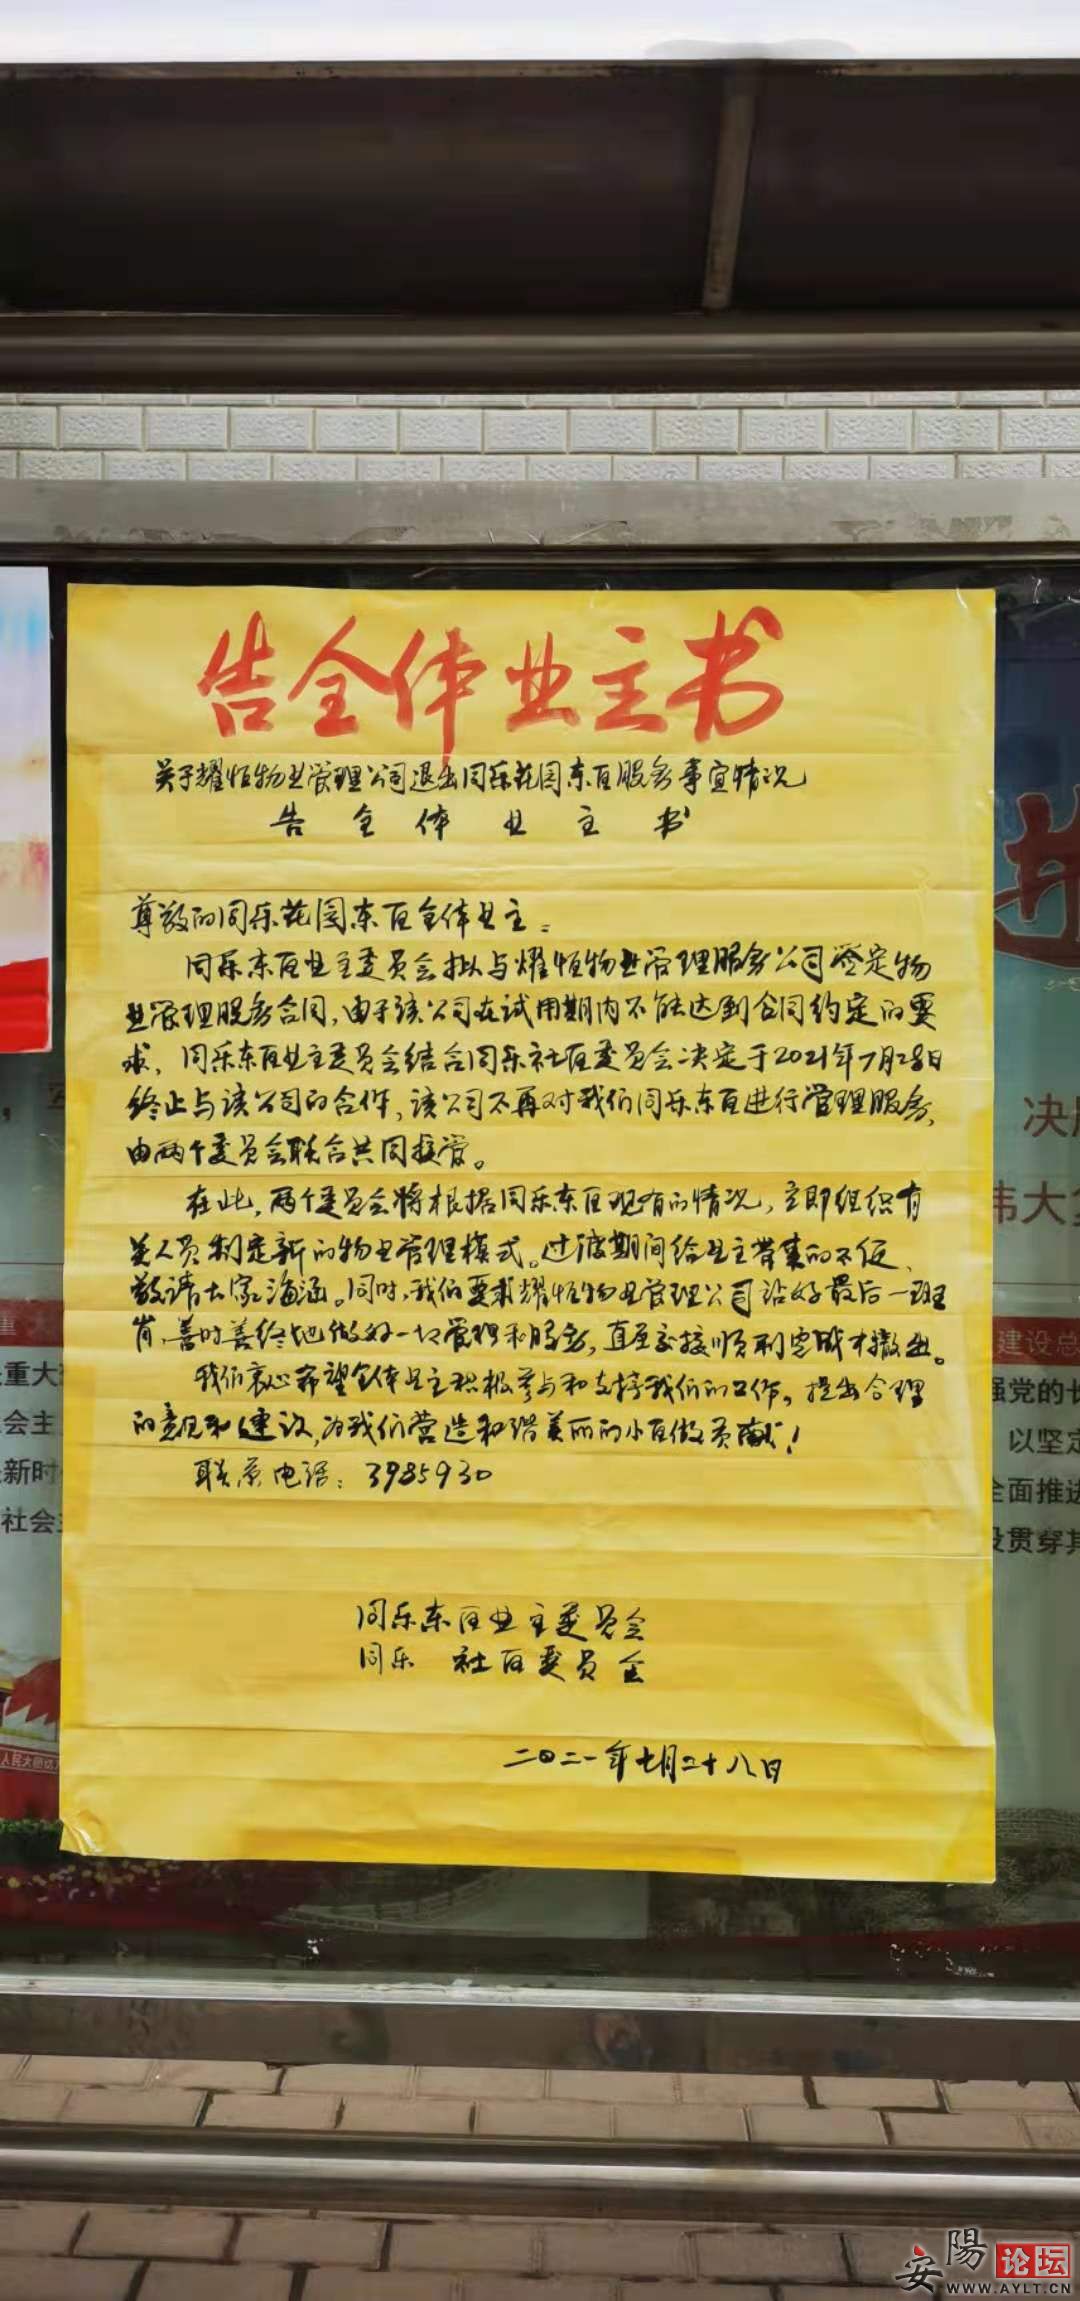 告全体业主书
关于耀恒物业管理公司退出同乐花园东区服务事宜情况
告全体业主书
尊敬的同乐花园东区全体业主：
同乐东区业主委员会拟与耀恒物业管理服务公司签定物
业管理服务合同，由于该公司在试用期内不能达到合同约定的要
求，同乐东区业主委员会结合同乐社区委员会决定于2021年7月28日
终止与该公司的合作，该公司不再对我们同乐东区进行管理服务，
由两个委员会联合共同接管。
在此，两个委员会将根据同乐东区现有的情况，立即组织有
关人员制定新的物业管理模式。过渡期间给业主带来的不便，
敬请大家海涵。同时，我们要求耀恒物业管理公司站好最后一班
岗，善时善终地做好一切管理和服务，直至交接顺利完成才撤出。
我们衷心希望全体业主积极参与和支持我们的工作，提出合理
的意见和建议，为我们营造和谐美丽的小区做贡献！
联系电话：3985930
同乐东区业主委员会
同乐 社区委员会
二〇二一年七月二十八日
决
伟大
建设总
强党的长
以坚定
全面推进
设贯穿其
重大
会主
新时
社会主
安陽论坛
WWW.AYLT.CN